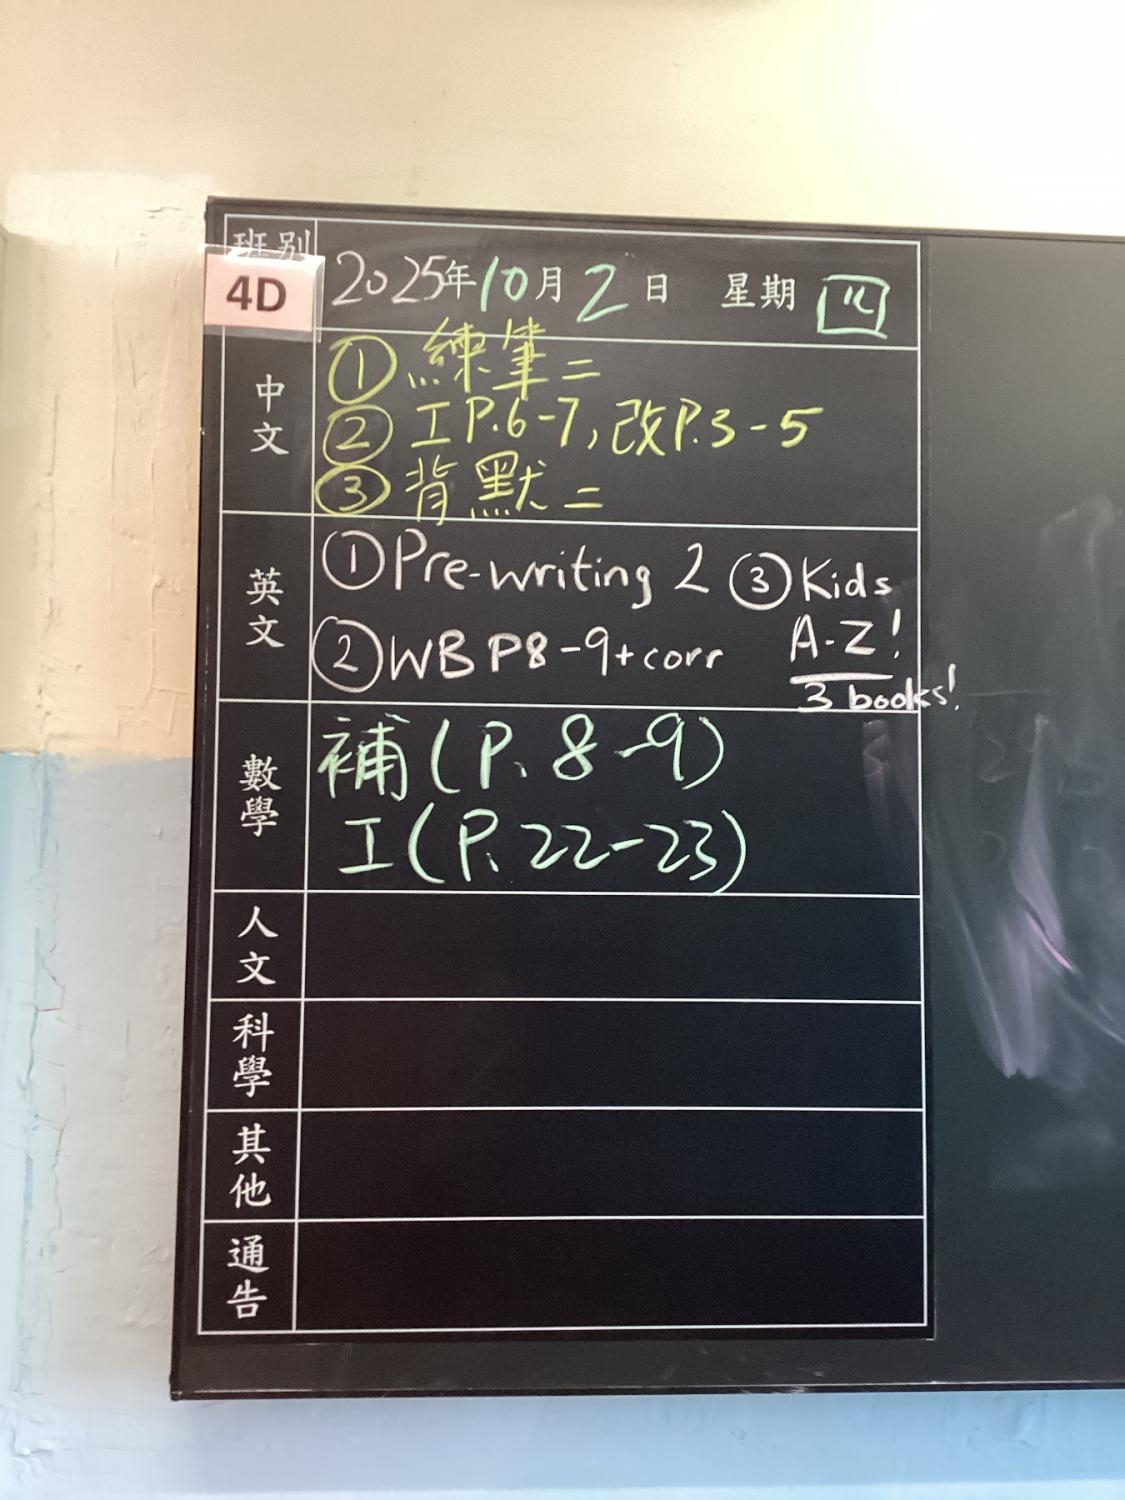 班別
4D
2025年10月2日 星期四
中文
①練筆二
②工P.6-7,改P.3-5
③背默二
英文
①Pre-writing 2 ③Kids
A-Z!
②WB P8-9+corr
3 books!
數學
補(P.8-9)
工(P.22-23)
人文
科學
其他
通告